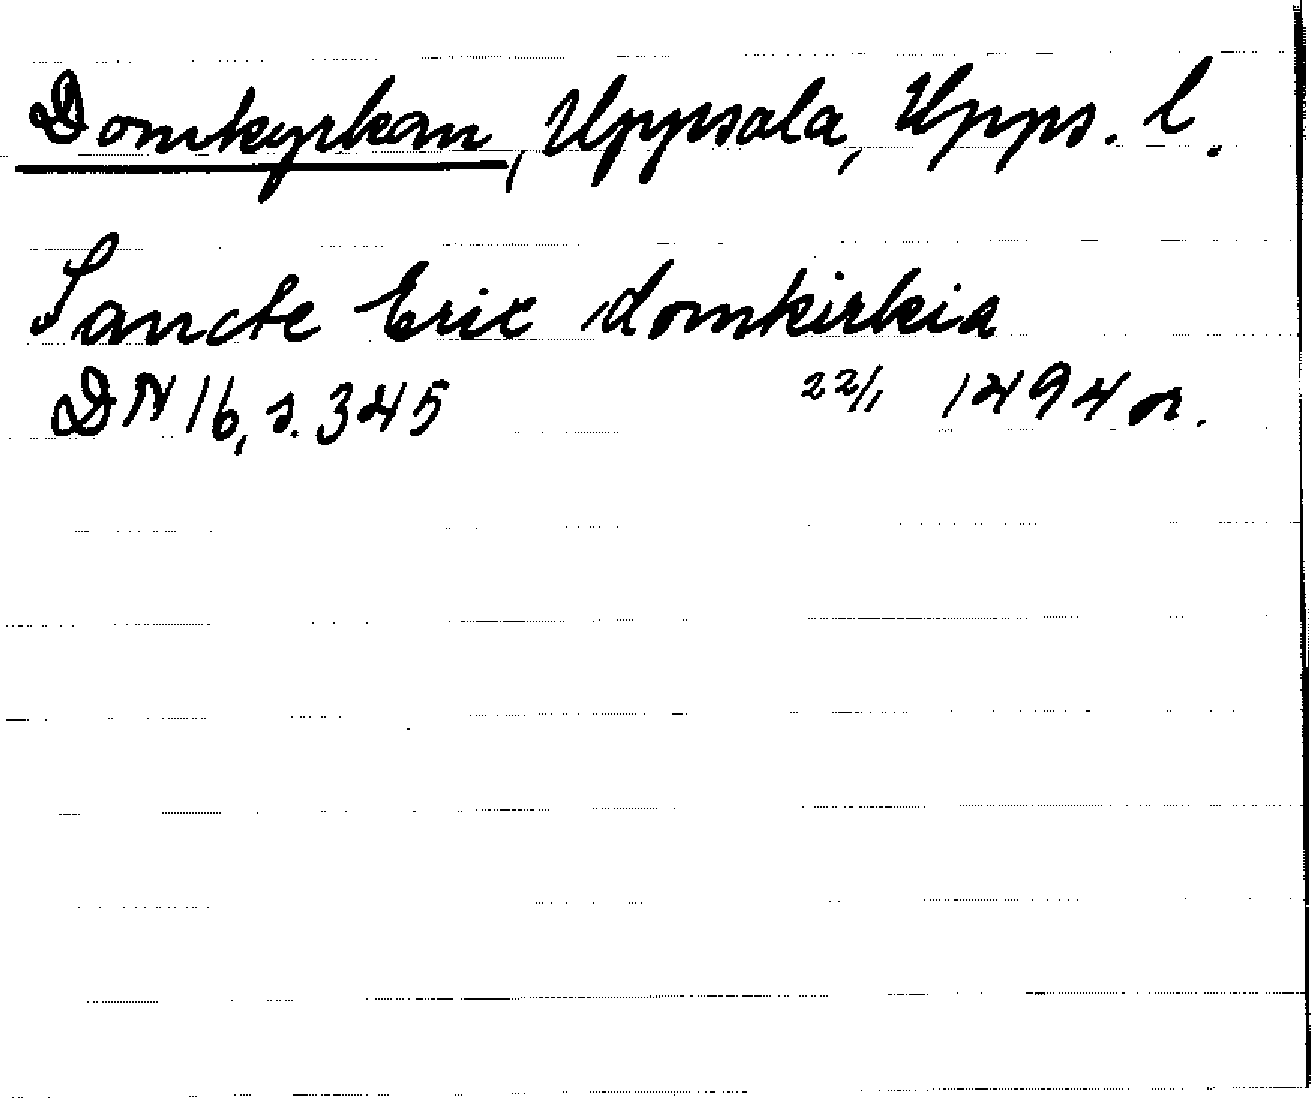 Domkyrkan, Uppsala, Upps. l.
Sancte Eric domkirkia
DN 16, s. 345 22/1 1494 or.